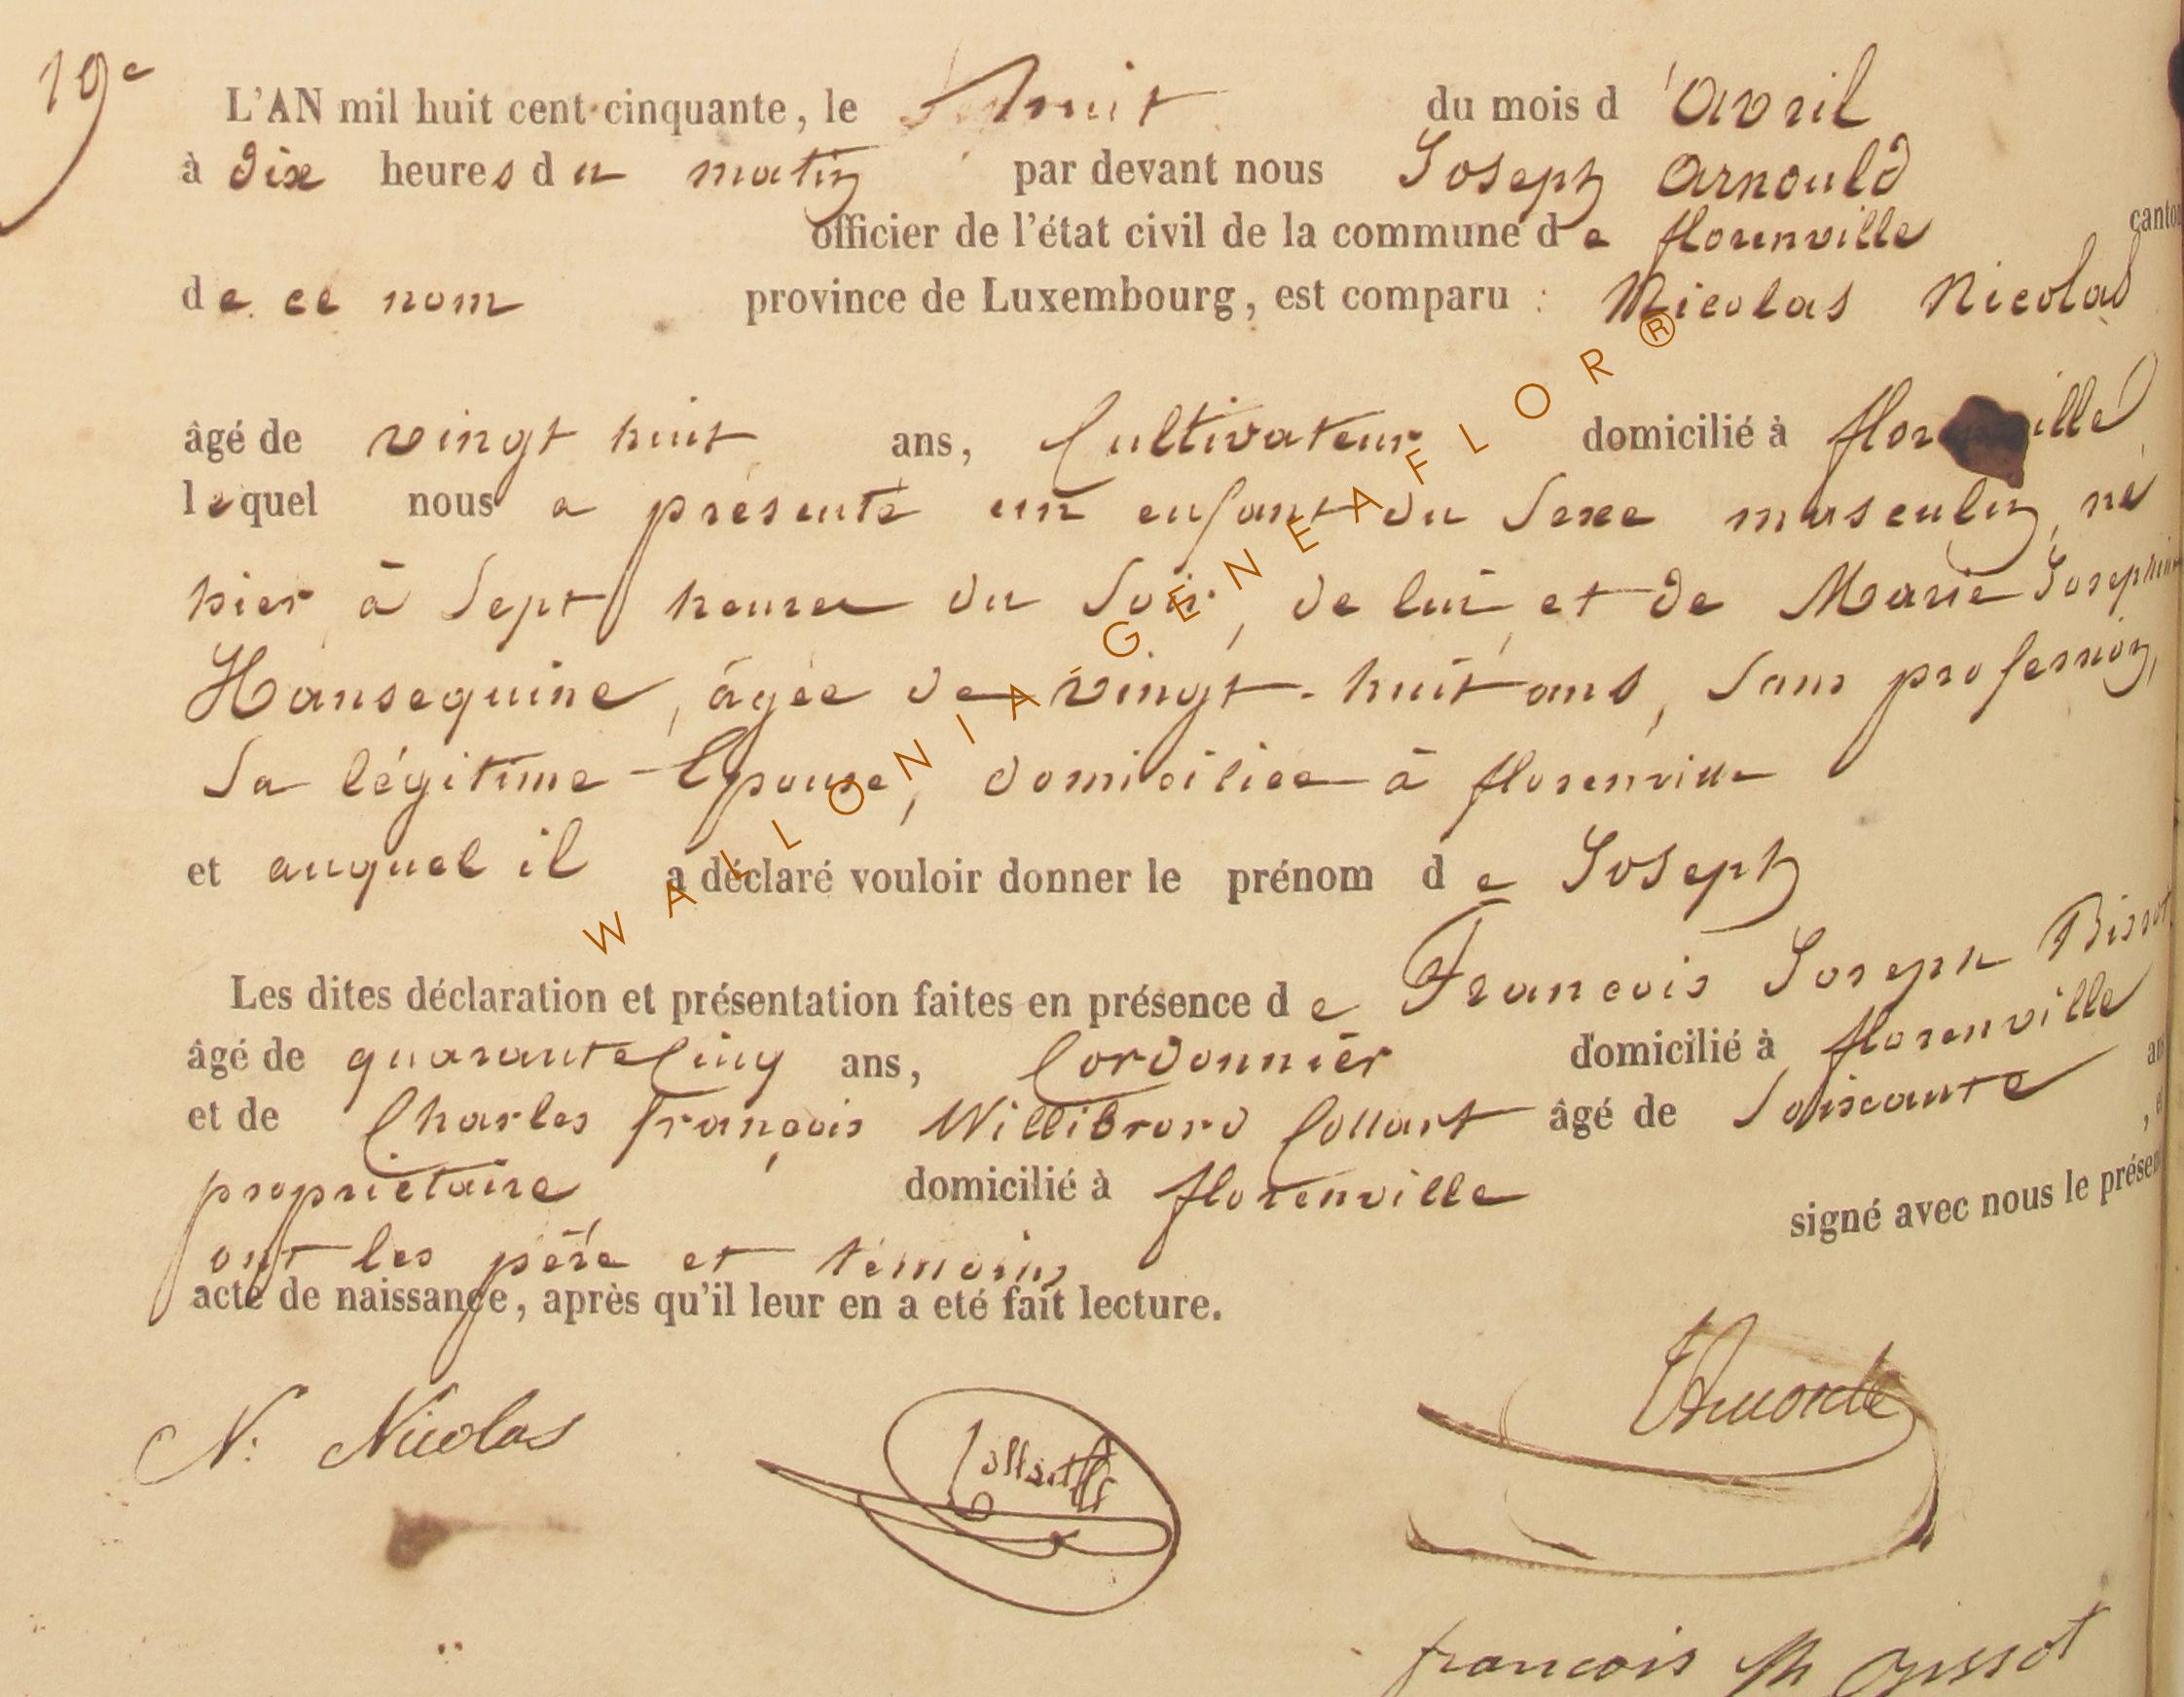 19e
L'AN mil huit cent cinquante, le huit du mois d'avril
à dix heures du matin par devant nous Joseph Arnould
officier de l'état civil de la commune de florenville canton
de ce nom province de Luxembourg, est comparu : Nicolas Nicolas
âgé de vingt huit ans, Cultivateur domicilié à florenville
lequel nous a présenté un enfant du Sexe masculin, né
hier à Sept heures du Soir, de lui et de Marie Josephine
Hansequine, âgée de vingt-huit ans, Sans profession,
Sa légitime Epouse, domiciliée à florenville
et auquel il a déclaré vouloir donner le prénom de Joseph
Les dites déclaration et présentation faites en présence de Francois Joseph
âgé de quarante Cinq ans, Cordonnier domicilié à florenville
et de Charles françois Willibrord Collart âgé de Soixante an
propriétaire domicilié à florenville
ont les père et témoins signé avec nous le présen
acte de naissance, après qu'il leur en a eté fait lecture.
N. Nicolas
Collart
francois
WALLONIA GENEAFLOR®